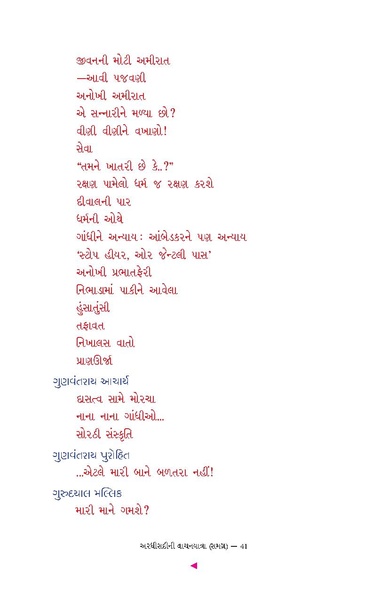 જીવનની મોટી અમીરાત
—આવી પજવણી
અનોખી અમીરાત
એ સન્નારીને મળ્યા છો?
વીણી વીણીને વખાણો!
સેવા
“તમને ખાતરી છે કે..?”
રક્ષણ પામેલો ધર્મ જ રક્ષણ કરશે
દીવાલની પાર
ધર્મની ઓથે
ગાંધીને અન્યાય : આંબેડકરને પણ અન્યાય
‘સ્ટોપ હીયર, ઓર જેન્ટલી પાસ’
અનોખી પ્રભાતફેરી
નિભાડામાં પાકીને આવેલા
હુંસાતુંસી
તફાવત
નિખાલસ વાતો
પ્રાણઊર્જા
ગુણવંતરાય આચાર્ય
દાસત્વ સામે મોરચા
નાના નાના ગાંધીઓ...
સોરઠી સંસ્કૃતિ
ગુણવંતરાય પુરોહિત
...એટલે મારી બાને બળતરા નહીં!
ગુરુદયાલ મલ્લિક
મારી માને ગમશે?
અરધીસદીની વાચનયાત્રા (સમગ્ર) — 41